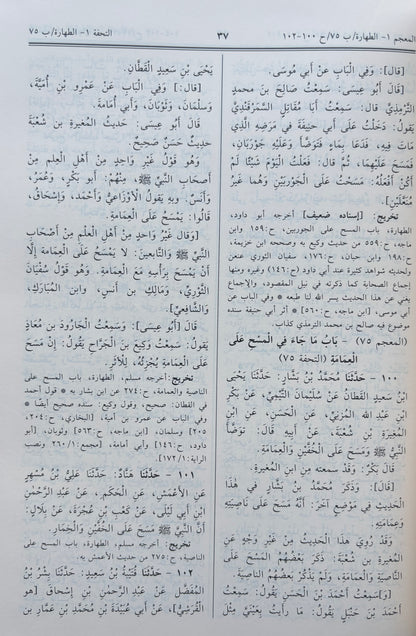 المعجم ١- الطهارة/ ب ٧٥/ ح ١٠٠-١٠٢
٣٧
التحفة ١- الطهارة/ ب ٧٥
[قال]: وَفِي الْبَابِ عَنْ أَبِي مُوسَى.
[قَالَ أَبُو عِيسَى: سَمِعْتُ صَالِحَ بْنَ مُحَمَّدٍ
التِّرْمِذِيَّ قَالَ: سَمِعْتُ أَبَا مُقَاتِلٍ السَّمَرْقَنْدِيَّ
يَقُولُ: دَخَلْتُ عَلَى أَبِي حَنِيفَةَ فِي مَرَضِهِ الَّذِي
مَاتَ فِيهِ، فَدَعَا بِمَاءٍ فَتَوَضَّأَ وَعَلَيْهِ جَوْرَبَانِ،
فَمَسَحَ عَلَيْهِمَا، ثُمَّ قَالَ: فَعَلْتُ الْيَوْمَ شَيْئًا لَمْ
أَكُنْ أَفْعَلُهُ: مَسَحْتُ عَلَى الْجَوْرَبَيْنِ وَهُمَا غَيْرُ
مُنَعَّلَيْنِ].
تخريج: [إسناده ضعيف] أخرجه أبو داود،
الطهارة، باب المسح على الجوربين، ح:١٥٩ وابن
ماجه، ح:٥٥٩ من حديث وكيع به وصححه ابن خزيمة،
ح:١٩٨ وابن حبان، ح:١٧٦، سفيان الثوري عنعن
ولحديثه شواهد كثيرة عند أبي داود (ح:١٤٦) وغيره ومنها
إجماع الصحابة كما ذكرته في نيل المقصود، والإجماع
يغني عن هذا الحديث يسر الله لنا طبعه @ وفي الباب عن
أبي موسى [ابن ماجه، ح:٥٦٠] @ أثر أبي حنيفة سنده
موضوع فيه صالح بن محمد الترمذي كذاب.
(المعجم ٧٥) - بَابُ مَا جَاءَ فِي الْمَسْحِ عَلَى
الْعِمَامَةِ (التحفة ٧٥)
١٠٠ - حَدَّثَنَا مُحَمَّدُ بْنُ بَشَّارٍ: حَدَّثَنَا يَحْيَى
ابْنُ سَعِيدٍ الْقَطَّانُ عَنْ سُلَيْمَانَ التَّيْمِيِّ، عَنْ بَكْرِ
ابْنِ عَبْدِ اللهِ الْمُزَنِيِّ، عَنِ الْحَسَنِ، عَنِ ابْنِ
الْمُغِيرَةِ بْنِ شُعْبَةَ، عَنْ أَبِيهِ قَالَ: تَوَضَّأَ
النَّبِيُّ ﷺ وَمَسَحَ عَلَى الْخُفَّيْنِ وَالْعِمَامَةِ.
قَالَ بَكْرٌ: وَقَدْ سَمِعْتُه مِنِ ابْنِ الْمُغِيرَةِ.
[قَالَ]: وَذَكَرَ مُحَمَّدُ بْنُ بَشَّارٍ فِي هَذَا
الْحَدِيثِ فِي مَوْضِعٍ آخَرَ: أَنَّهُ مَسَحَ عَلَى نَاصِيَتِهِ
وَعِمَامَتِهِ.
وَقَدْ رُوِيَ هَذَا الْحَدِيثُ مِنْ غَيْرِ وَجْهٍ عَنِ
الْمُغِيرَةِ بْنِ شُعْبَةَ: ذَكَرَ بَعْضُهُمُ الْمَسْحَ عَلَى
النَّاصِيَةِ وَالْعِمَامَةِ، وَلَمْ يَذْكُرْ بَعْضُهُمُ النَّاصِيَةَ.
[وَ]سَمِعْتُ أَحْمَدَ بْنَ الْحَسَنِ يَقُولُ: سَمِعْتُ
أَحْمَدَ بْنَ حَنْبَلٍ يَقُولُ: مَا رَأَيْتُ بِعَيْنِي مِثْلَ
يَحْيَى بْنِ سَعِيدٍ الْقَطَّانِ.
[قَالَ:] وَفِي الْبَابِ عَنْ عَمْرِو بْنِ أُمَيَّةَ،
وَسَلْمَانَ، وَثَوْبَانَ، وَأَبِي أُمَامَةَ.
قَالَ أَبُو عِيسَى: حَدِيثُ الْمُغِيرَةِ بْنِ شُعْبَةَ
حَدِيثٌ حَسَنٌ صَحِيحٌ.
وَهُوَ قَوْلُ غَيْرِ وَاحِدٍ مِنْ أَهْلِ الْعِلْمِ مِنْ
أَصْحَابِ النَّبِيِّ ﷺ، مِنْهُمْ: أَبُو بَكْرٍ، وَعُمَرُ،
وَأَنَسٌ. وَبِهِ يَقُولُ الْأَوْزَاعِيُّ، وَأَحْمَدُ، وَإِسْحَاقُ،
قَالُوا: يَمْسَحُ عَلَى الْعِمَامَةِ.
[وَقَالَ غَيْرُ وَاحِدٍ مِنْ أَهْلِ الْعِلْمِ مِنْ أَصْحَابِ
النَّبِيِّ ﷺ وَالتَّابِعِينَ: لَا يَمْسَحُ عَلَى الْعِمَامَةِ إِلَّا
أَنْ يَمْسَحَ بِرَأْسِهِ مَعَ الْعِمَامَةِ. وَهُوَ قَوْلُ سُفْيَانَ
الثَّوْرِيِّ، وَمَالِكِ بْنِ أَنَسٍ، وَابْنِ الْمُبَارَكِ،
وَالشَّافِعِيِّ].
[قَالَ أَبُو عِيسَى]: وَسَمِعْتُ الْجَارُودَ بْنَ مُعَاذٍ
يَقُولُ: سَمِعْتُ وَكِيعَ بْنَ الْجَرَّاحِ يَقُولُ: إِنْ مَسَحَ
عَلَى الْعِمَامَةِ يُجْزِئُهُ لِلْأَثَرِ.
تخريج: أخرجه مسلم، الطهارة، باب المسح على
الناصية والعمامة، ح:٢٧٤ عن ابن بشار به * قول أحمد
في القطان: صحيح، وقول وكيع: سنده صحيح أيضًا *
وفي الباب عن عمرو بن أمية [البخاري، ح:٢٠٤،
٢٠٥] وسلمان، [ابن ماجه، ح:٥٦٣] وثوبان، [أبو
داود، ح:١٤٦] وأبي أمامة، [مجمع:١/ ٢٦٠ ونصب
الراية:١/ ١٧٢].
١٠١ - حَدَّثَنَا هَنَّادٌ: حَدَّثَنَا عَلِيُّ بْنُ مُسْهِرٍ
عَنِ الْأَعْمَشِ، عَنِ الْحَكَمِ، عَنْ عَبْدِ الرَّحْمَنِ
ابْنِ أَبِي لَيْلَى، عَنْ كَعْبِ بْنِ عُجْرَةَ، عَنْ بِلَالٍ:
أَنَّ النَّبِيَّ ﷺ مَسَحَ عَلَى الْخُفَّيْنِ وَالْخِمَارِ.
تخريج: أخرجه مسلم، الطهارة، باب المسح على
الناصية، ح:٢٧٥ من حديث الأعمش به.
١٠٢ - حَدَّثَنَا قُتَيْبَةُ بْنُ سَعِيدٍ: حَدَّثَنَا بِشْرُ بْنُ
الْمُفَضَّلِ عَنْ عَبْدِ الرَّحْمَنِ بْنِ إِسْحَاقَ [هو
الْقُرَشِيُّ]، عَنْ أَبِي عُبَيْدَةَ بْنِ مُحَمَّدِ بْنِ عَمَّارِ بْنِ